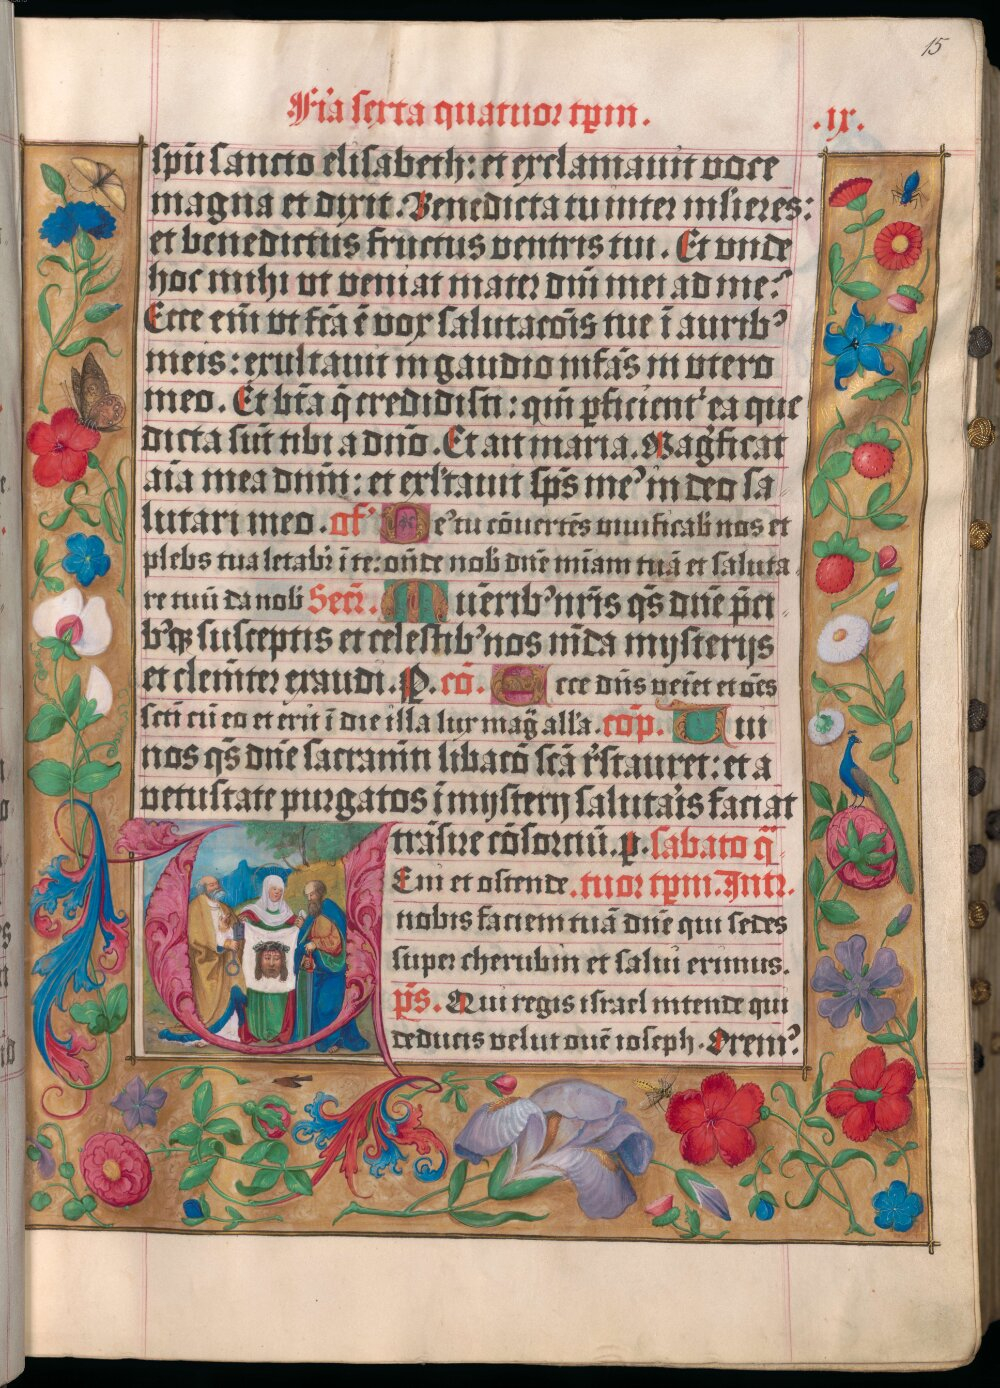 15
Fi̅a sexta quatuor tp̅m.
.ix.
sp̅u sancto elisabeth: et exclamauit voce
magna et dixit. Benedicta tu inter mlieres:
et benedictus fructus ventris tui. Et vnde
hoc mihi vt veniat mater dn̅i mei ad me?
Ecce eni̅ vt fc̅a e̅ vox salutaco̅is tue i̅ aurib⁹
meis: exultauit in gaudio infa̅s in vtero
meo. Et bt̅a q̅ credidisti: qm̅ p̅ficient' ea que
dicta su̅t tibi a dn̅o. Et ait maria. Mag̅ficat
ai̅a mea dn̅m: et exl'tauit sp̅s me⁹ in deo sa
lutari meo. of' De⁹ tu co̅uerte̅s viuificab' nos et
plebs tua letab'r i̅ te: on̅de nob' dn̅e mi̅am tua̅ et saluta
re tuu̅ da nob' Secr̅. Mu̅erib⁹ nr̅is qs̅ dn̅e p̅ci
b⁹qꝫ susceptis et celestib⁹ nos mu̅da mysterijs
et cleme̅ter exaudi. P. co̅. Ecce dn̅s vei̅et et oe̅s
sc̅ti cu̅ eo et erit i̅ die illa lux mag̅ all'a. co̅p. Tui
nos qs̅ dn̅e sacrame̅ti libaco̅ sc̅a r̅stauret: et a
vetustate purgatos i̅ mystery saluta'is faciat
tra̅sire co̅sorciu̅. p. sabato q̅
Veni et ostende .tuor tp̅m. Intr.
nobis faciem tua̅ dn̅e qui sedes
super cherubin et salui erimus.
p̅s. Qui regis israel intende qui
deducis velut oue̅ ioseph. Orem⁹.